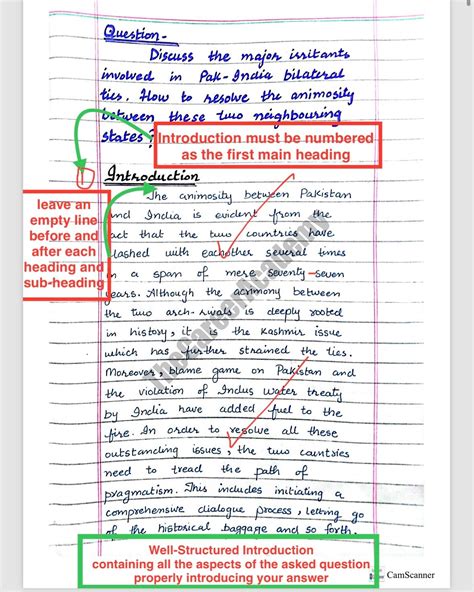 Question -
Discuss the major irritants
involved in Pak-India bilateral
ties. How to resolve the animosity
between these two neighbouring
states?
Introduction must be numbered
as the first main heading
1
Introduction
leave an
empty line
before and
after each
heading and
sub-heading
The animosity between Pakistan
and India is evident from the
fact that the two countries have
clashed with eachother several times
in a span of mere seventy-seven
years. Although the acrimony between
the two arch-rivals is deeply rooted
in history, it is the Kashmir issue
which has further strained the ties.
Moreover, blame game on Pakistan and
the violation of Indus water treaty
by India have added fuel to the
fire. In order to resolve all these
outstanding issues, the two countries
need to tread the path of
pragmatism. This includes initiating a
comprehensive dialogue process, letting go
of the historical baggage and so forth.
TheCareerAcademy
Well-Structured Introduction
containing all the aspects of the asked question
properly introducing your answer
CamScanner